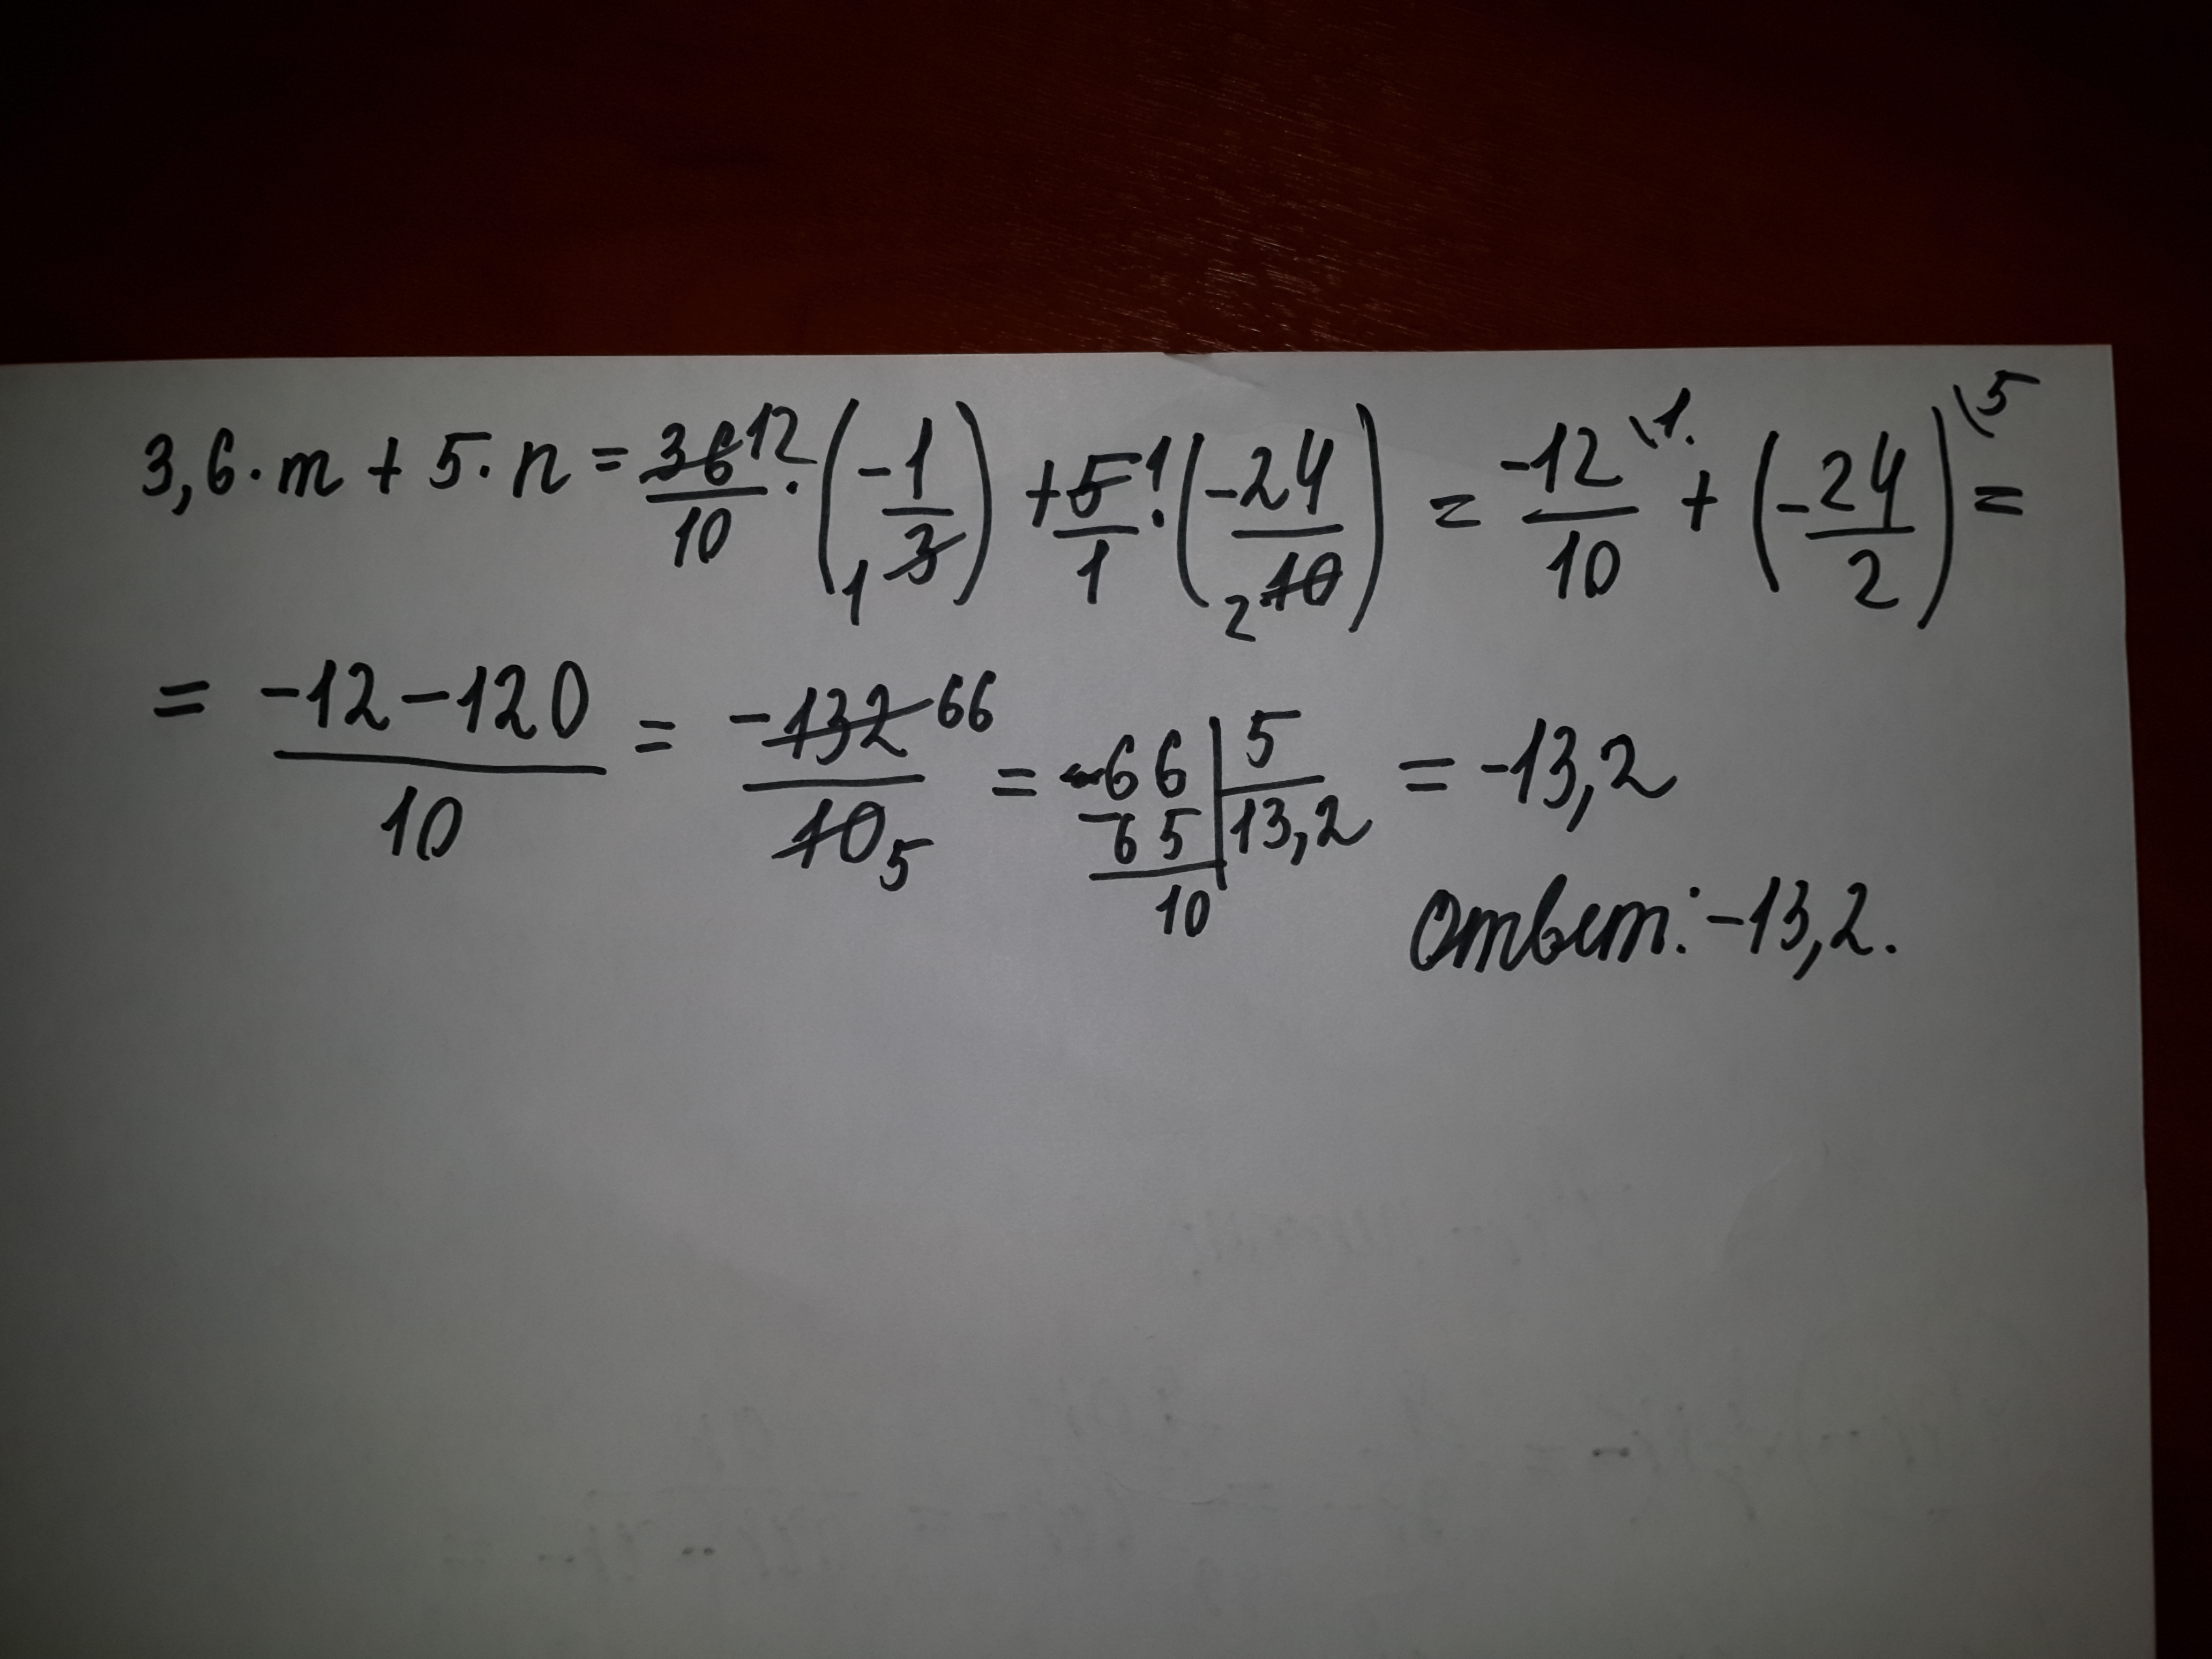 3,6·m + 5·n = 36 12/10 · (-1/1 3) + 5 1/1 · (-24/2 10) = -12/10 \1. + (-24/2) \5 =
= -12-120/10 = -132 66/10 5 = -66 | 5 = -13,2
-65 | 13,2
10
ответ: -13,2.